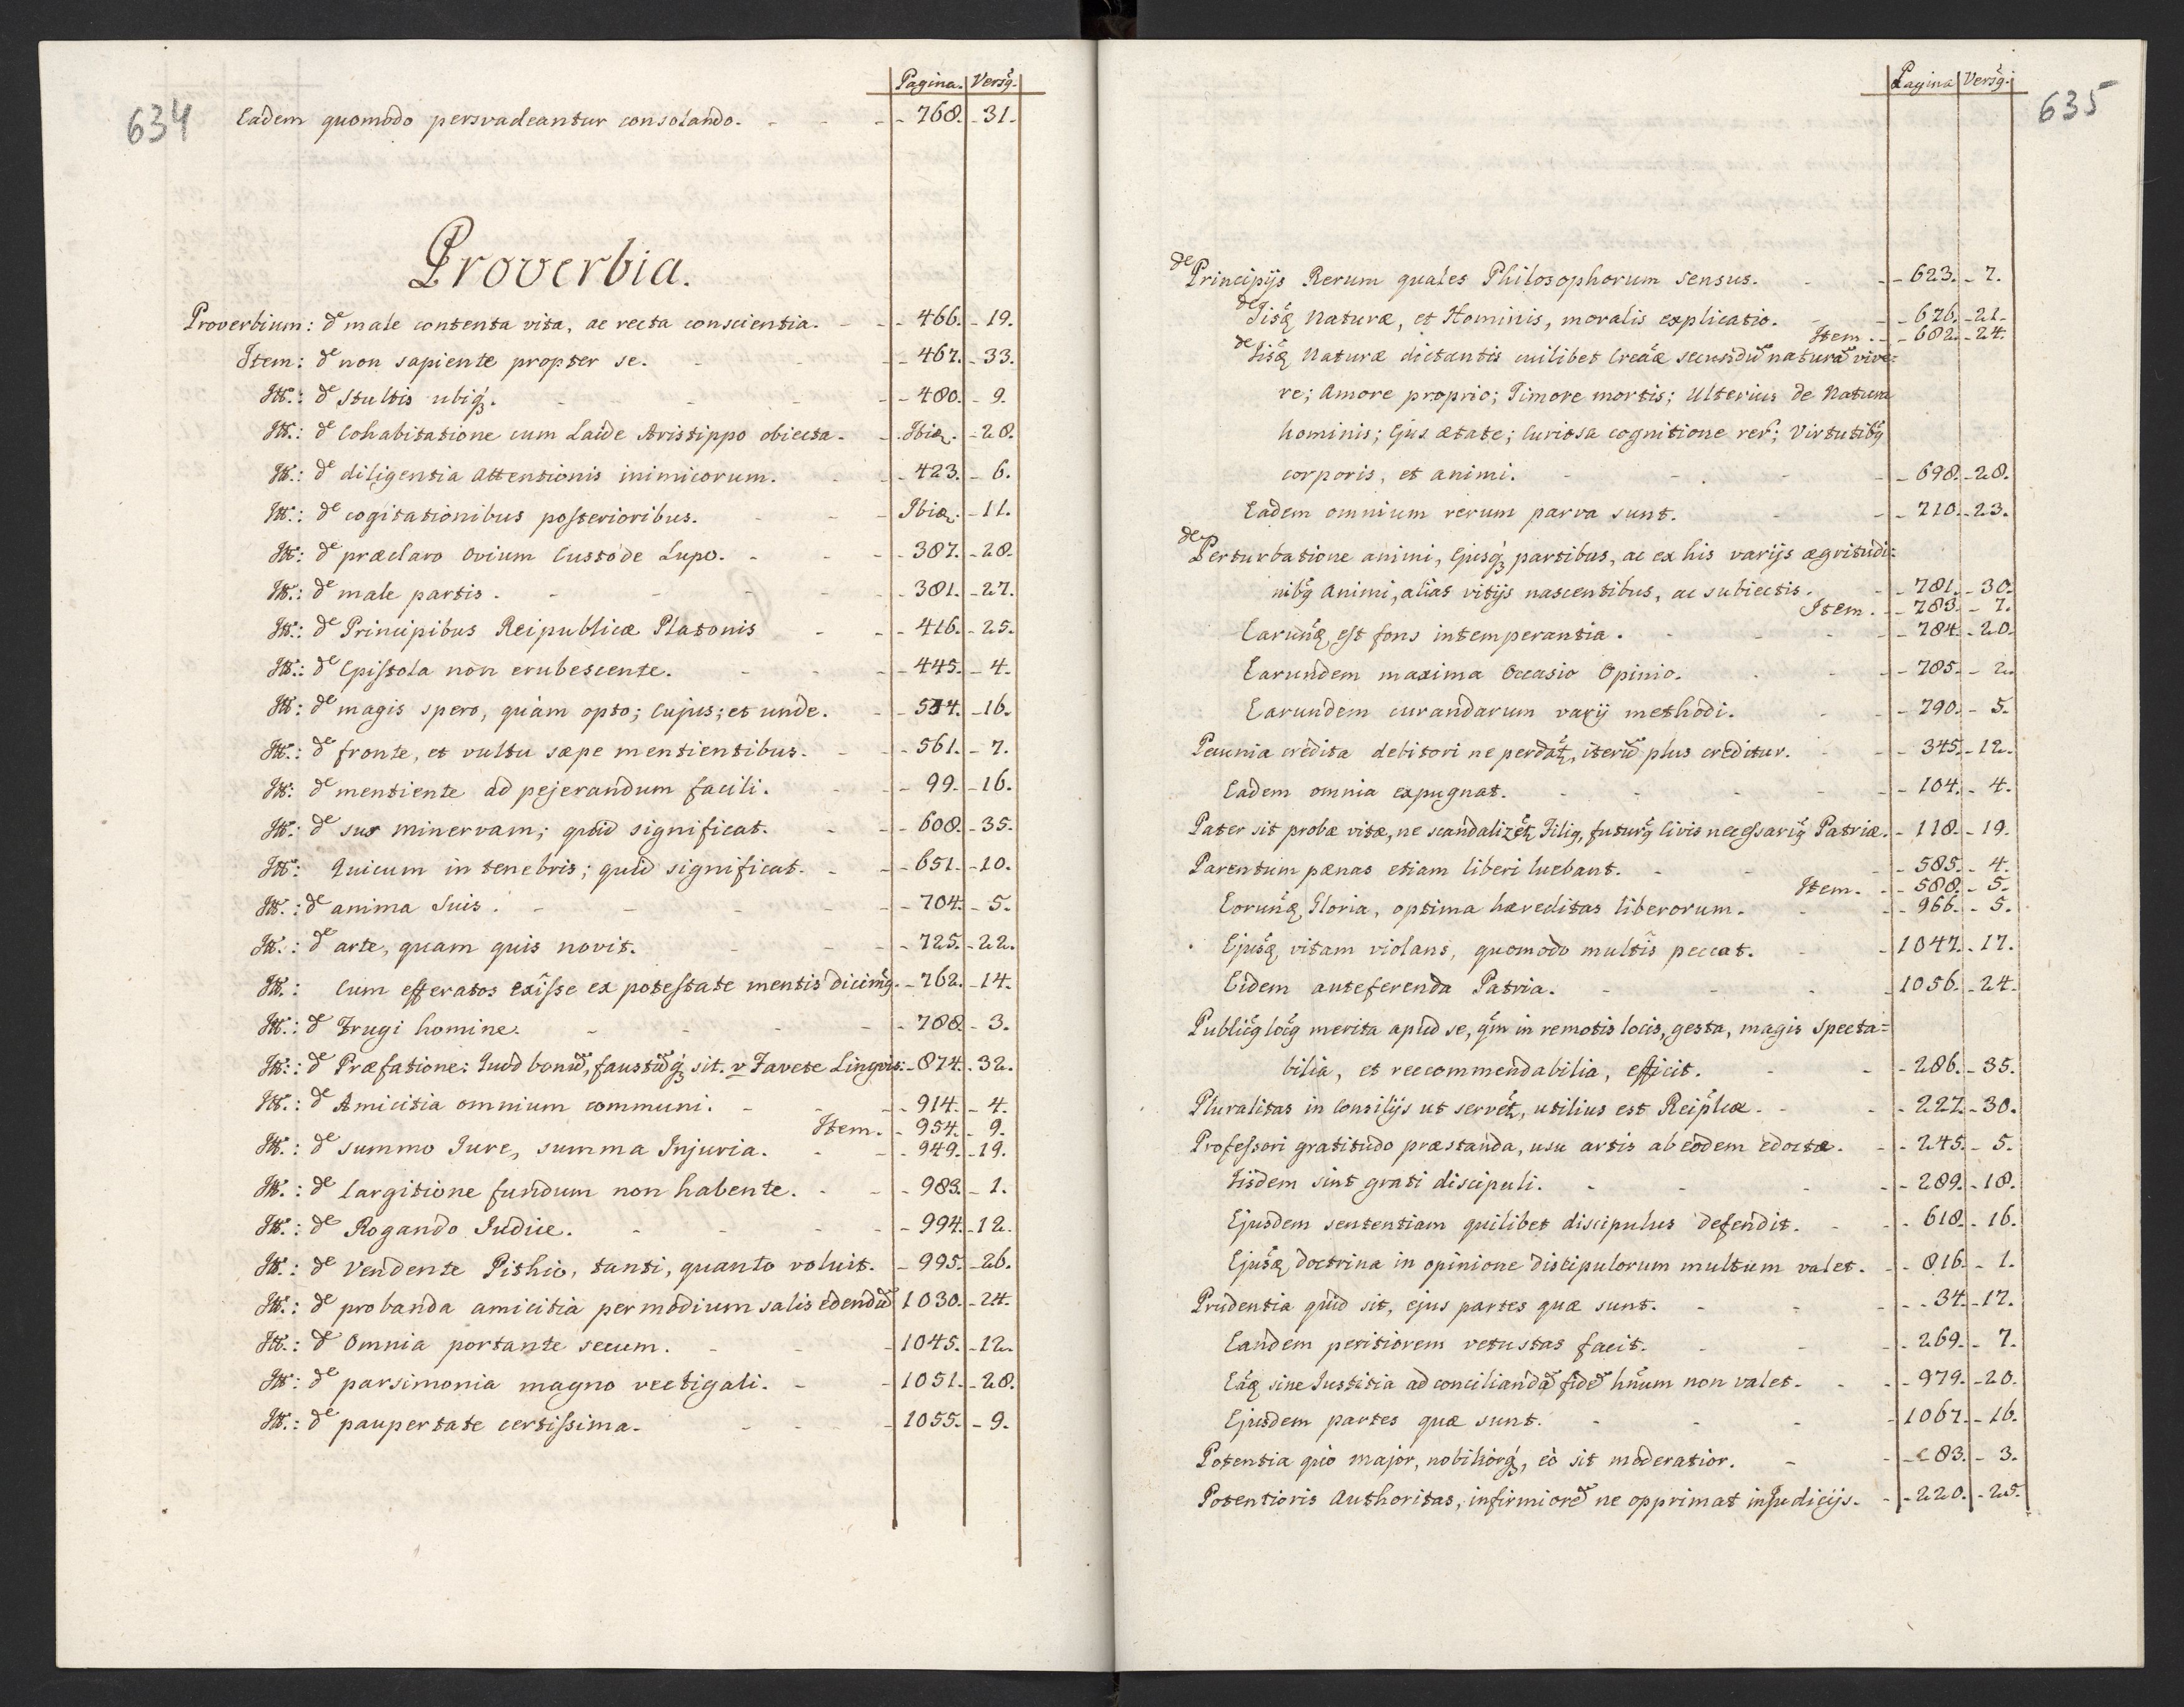 634
Pagina. Versq.
Eadem quomodo persvadeantur consolando. - 768. - 31.
Proverbia.
Proverbium: de male contenta vita, ac recta conscientia. - 466. - 19.
Item: de non sapiente propter se. - 467. - 33.
Itt.: de Stultis ubiq. - 480. - 9.
Itt.: de Cohabitatione cum Laide Aristippo obiecta. - Ibid. - 28.
Itt.: de diligentia Attentionis inimicorum. - 423. - 6.
Itt.: de cogitationibus posterioribus. - Ibid. - 11.
Itt: de præclaro Ovium Custode Lupo. - 387. - 28.
Itt.: de male partis. - 381. - 27.
Itt.: de Principibus Reipublicæ Platonis - 416. - 25.
Itt.: de Epistola non erubescente. - 445. - 4.
Itt: de magis spero, quàm opto; Cujus; et unde. - 534. - 16.
Itt.: de fronte, et vultu sæpe mentientibus. - 561. - 7.
Itt: de mentiente ad pejerandum facili. - 99. - 16.
Itt.: de sus minervam; quid significat. - 608. - 35.
Itt: Quicum in tenebris; quid significat. - 651. - 10.
Itt.: de anima Suis. - 704. - 5.
Itt.: de arte, quam quis novit. - 725. - 22.
Itt.: Cum efferatos exîsse ex potestate mentis dicimq. - 762. - 14.
Itt.: de Frugi homine. - 788. - 3.
Itt.: de Præfatione: Quod bonū, faustūq sit. v Favete Lingvis: - 874. - 32.
Itt.: de Amicitia omnium communi. - 914. - 4.
Item. - 954. - 9.
Itt.: de summo Jure, summa Injuria. - 949. - 19.
Itt.: de largitione fundum non habente. - 983. - 1.
Itt.: de Rogando Judice. - 994. - 12.
Itt.: de Vendente Pithio, tanti, quanto voluit. - 995. - 26.
Itt.: de probanda amicitia per modium salis edendū 1030. - 24.
Itt.: de Omnia portante secum. - 1045. - 12.
Itt: de parsimonia magno vectigali. - 1051. - 28.
Itt.: de paupertate certissima. - 1055. - 9.
635
Pagina Versq.
de Principijs Rerum quales Philosophorum Sensus. - 623. - 7.
de Iisq Naturæ, et Hominis, moralis explicatio. - 676. - 21.
Item. - 682. - 24.
de Iisq Naturæ dictantis cuilibet Creaæ secundū naturā vive=
re; Amore proprio; Timore mortis; Ulterius de Natura
hominis; Ejus ætate; Curiosa cognitione rer; Virtutibq
corporis, et animi. - 698. - 28.
Eadem omnium rerum parva sunt. - 710. - 23.
de Perturbatione animi, Ejusq partibus, ac ex his varijs ægritudi=
nibq Animi, aliàs vitijs nascentibus, ac subiectis. - 781. - 30.
Item. - 783. - 7.
Earunq est fons intemperantia. - 784. - 20.
Earundem maxima Occasio Opinio. - 785. - 2.
Earundem curandarum varij methodi. - 790. - 5.
Pecunia credita debitori ne perdat, iterū plus creditur. - 345. - 12.
Eadem omnia expugnat. - 104. - 4.
Pater sit probæ vitæ, ne scandalizet Filiq, futurq Civis necessariq Patriæ. - 118. - 19.
Parentum pænas etiam liberi luebant. - 585. - 4.
Item. - 588. - 5.
Eorunq Gloria, optima hæreditas liberorum. - 966. - 5.
Ejusq vitam violans, quomodo multis peccat. - 1047. - 17.
Eidem anteferenda Patria. - 1056. - 24.
Publicq locq merita apud se, qm in remotis locis, gesta, magis specta=
bilia, et reccommendabilia, efficit. - 286. - 35.
Pluralitas in Consilijs ut servet, utilius est Reiplicæ. - 227. - 30.
Professori gratitudo præstanda, usu artis ab eodem edoctæ. - 245. - 5.
Iisdem sint grati discipuli. - 289. - 18.
Ejusdem sententiam quilibet discipulus defendit. - 618. - 16.
Ejusq doctrina in opinione discipulorum multum valet. - 816. - 1.
Prudentia quid sit, ejus partes quæ sunt. - 34. - 17.
Eandem peritiorem vetustas facit. - 269. - 7.
Eaq sine Justitia ad conciliandā fidē hnum non valet. - 979. - 20.
Ejusdem partes quæ sunt. - 1067. - 16.
Potentia quò major, nobiliorq, eò sit moderatior. - 83. - 3.
Potentioris Authoritas, infirmiorē ne opprimat in Judicijs. - 220. - 25.